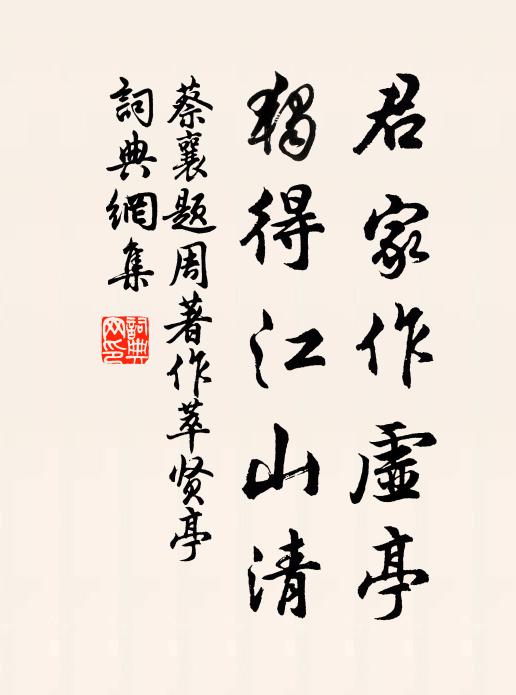 君家作虚亭
独得江山清
蔡襄题周著作萃贤亭
詞典網集
詞典网印